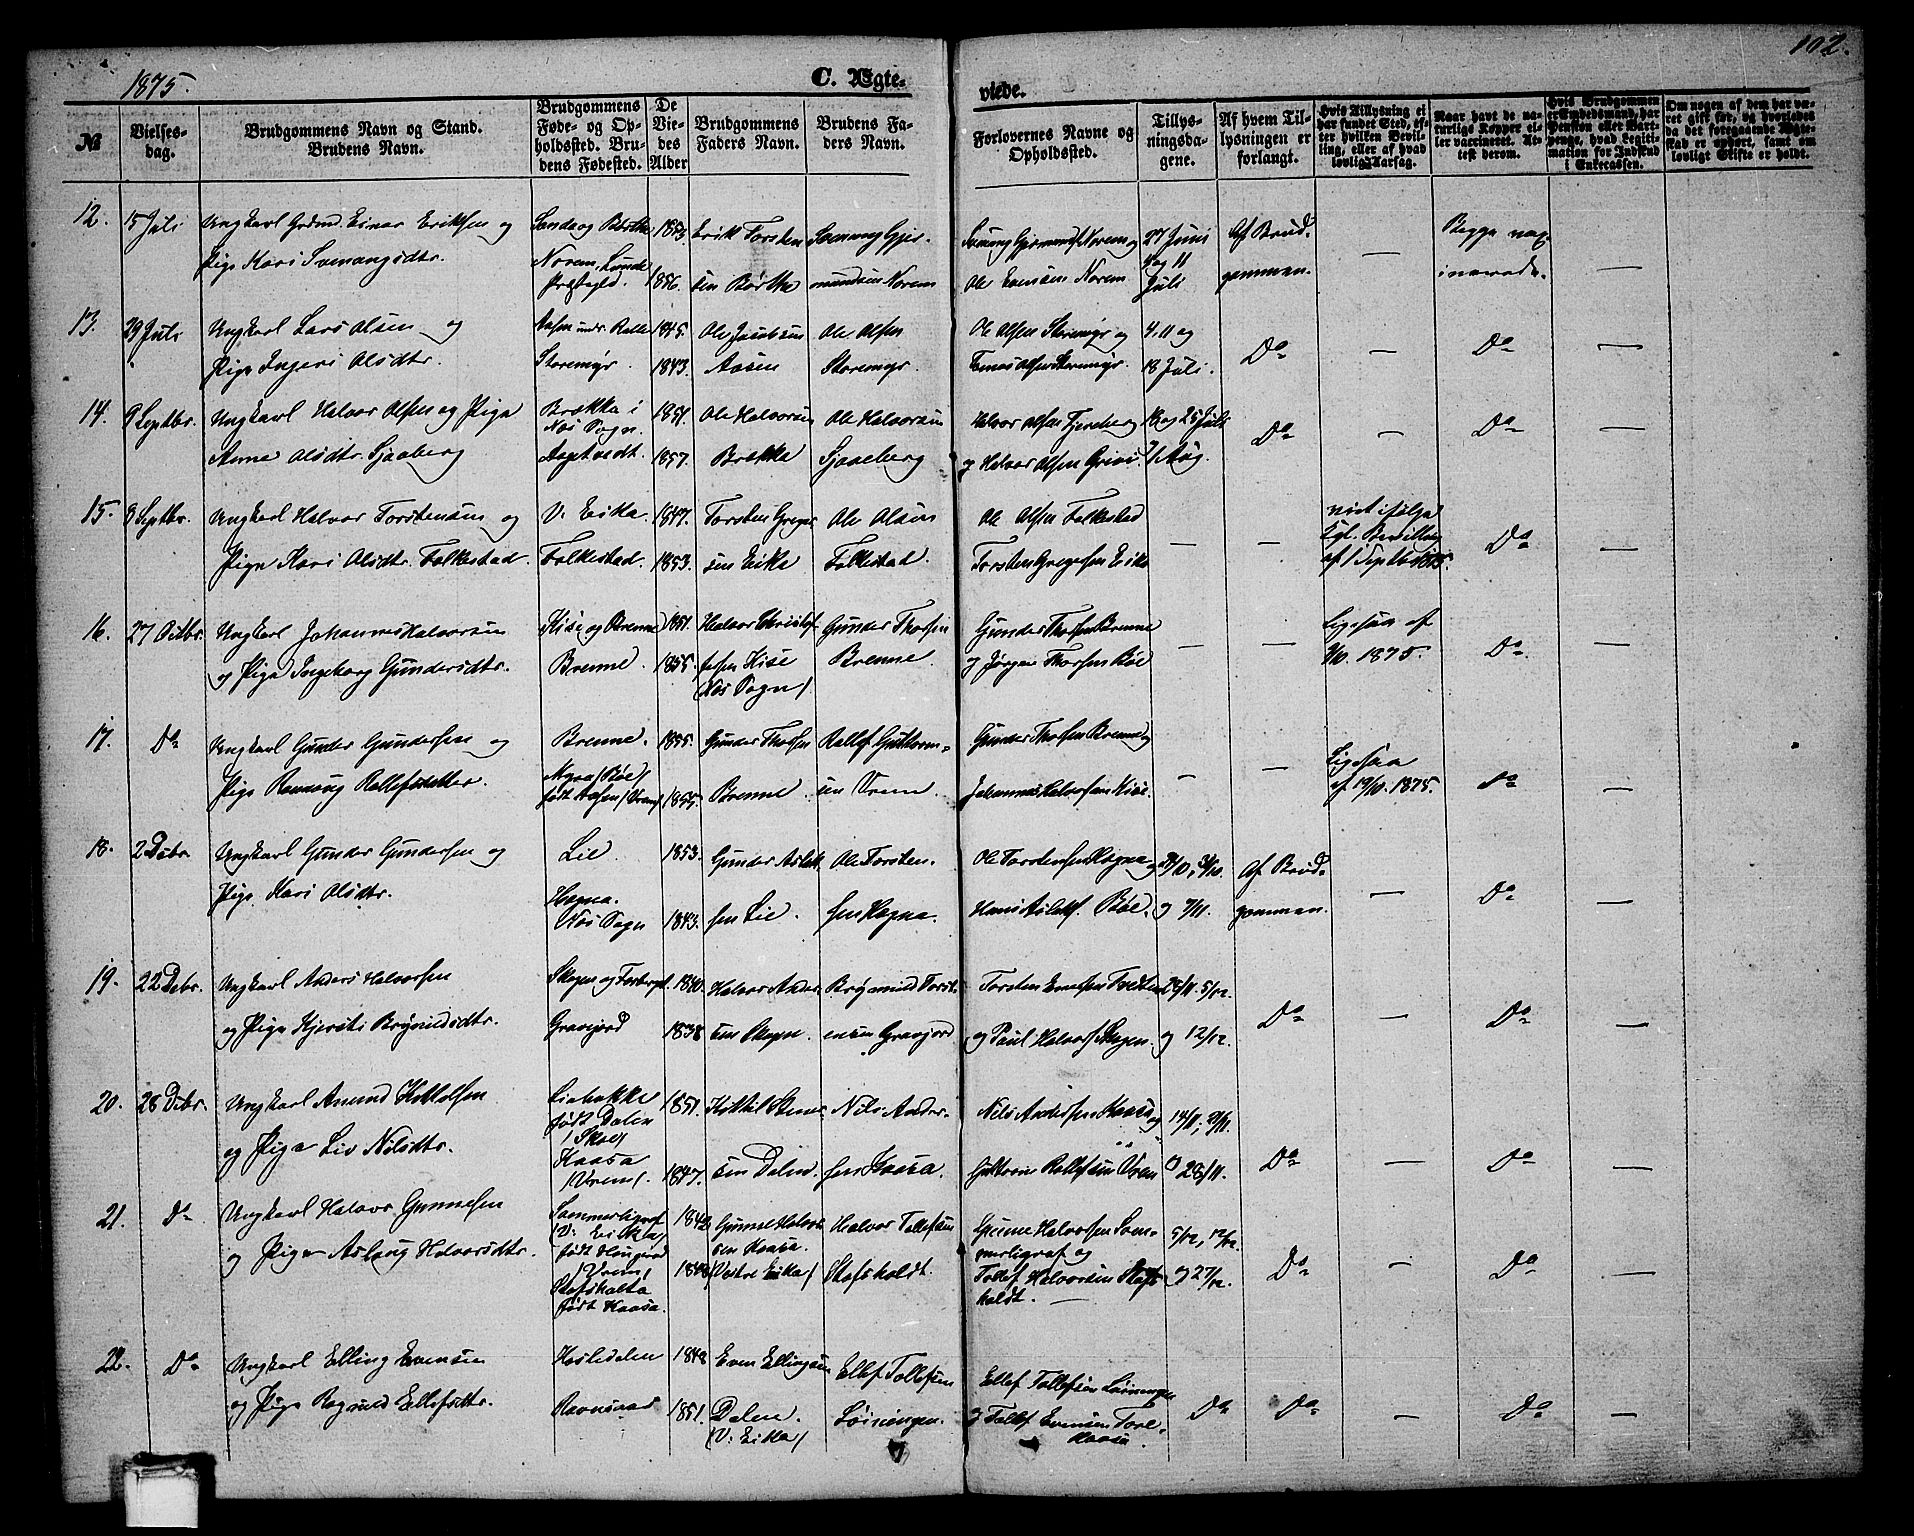 1875.
C. Ægte-
viede.
102.
№
Vielses-
dag.
Brudgommens Navn og Stand.
Brudens Navn.
Brudgommens
Føde- og Op-
holdssted. Bru-
dens Fødested.
De
Vie-
des
Alder
Brudgommens
Faders Navn.
Brudens Fa-
ders Navn.
Forlovernes Navne og
Opholdssted.
Tillys-
ningsda-
gene.
Af hvem Til-
lysningen er
forlangt.
Hvis Tillysning ei
har fundet Sted, ef-
ter hvilken Bevil-
ling, eller af hvad
lovlig Aarsag.
Naar havt de na-
turlige Kopper el-
ler vaccineret. At-
test derom.
Hvis Brudgommen
er Embedsmand, har
Pension eller Vart-
penge, hvad Legiti-
mation for Indskud
i Enkecassen.
Om nogen af dem har væ-
ret gift før, og hvorledes
da det foregaaende Ægte-
skab er ophørt, samt om
lovligt Skifte er holdt.
12. 15 Juli Ungkarl Einar Eriksen og
Pige Kari Svenungsdtr.
Norem, Lunde
Præstegld.
1853
1856.
Erik Torsten
sen Børthe
Svenung Gjer-
mundsen Norem
Svenung Gjermunds. Norem og
Ole Evensen Norem
27 Juni
4 og 11
Juli
Af Brud-
gommen.
—
Begge vac-
inerede.
—
13. 29 Juli Ungkarl Lars Olsen og
Pige Ingeri Olsdtr.
Storemyr.
1845.
1843.
Ole Jacobsen
Aasen
Ole Olsen
Storemyr.
Ole Olsen Storemyr og
Tomas Olsen Storemyr.
4. 11 og
18 Juli.
Do — Do —
14. 9 Septbr. Ungkarl Halvor Olsen og Pige
Anne Olsdtr. Sjaaberg
Brækka i
Nes Sogn.
1851.
1857.
Ole Halvorsen
Brække
Ole Halvorsen
Sjaaberg
og Halvor Olsen
18 og 25 Juli
1 Aug.
Do — Do —
15. 9 Septbr. Ungkarl Halvor Torstensen og
Pige Kari Olsdtr. Folkestad.
V. Eika.
Folkestad.
1847.
1853.
Torsten Greger
sen Eika
Ole Olsen
Folkestad.
Ole Olsen Folkestad
Torsten Gregersen Eika
— —
viet ifølge
Kgl. Bevilling
af 1 Septbr 1875.
Do —
16. 27 Octbr. Ungkarl Johannes Halvorsen
og Pige Ingeborg Gundersdtr.
Kise og Brenne
Brenne.
1851.
1855.
Halvor Christof
fersen Kise
(Nes Sogn)
Gunder Thorsen
Brenne.
Gunder Thorsen Brenne
og Jørgen Thorsen Bøe
— —
Ligesaa af
1875.
Do —
17. Do Ungkarl Gunder Gundersen og
Pige Ronnaug Rollefsdatter.
Brenne.
Myra (Bøe)
født Aasen (Vrem)
1855.
1855.
Gunder Thorsen
Brenne.
Rollef Guttorm-
sen Vrem.
Gunder Thorsen Brenne og
Johannes Halvorsen Kise.
— —
Ligesaa
af 19/10. 1875.
Do —
18. 2 Debr. Ungkarl Gunder Gundersen og
Pige Kari Olsdtr.
Lie.
Hagna.
Nes Sogn
1853.
1843.
Gunder Aslak
sen Lie.
Ole Torsten-
sen Hagna.
Ole Torstensen Hagna og
Hans Aslaks. Bøe.
og 7/11.
Af Brud-
gommen.
— Do —
19. 22 Debr. Ungkarl Anders Halvorsen
og Pige Kjersti Brynildsdtr.
Gravjord
1840.
1838
Halvor Anders
sen Skogen.
Brynild Torst-
ensen Gravjord
og Paul Halvors. Skogen.
28/11. 5/12.
og 12/12.
Do — Do —
20. 28 Debr. Ungkarl Anund Kittilsen
og Pige Liv Nilsdtr.
Liabakke
født Dalen
Kaasa
(Vrem).
1851.
1847.
Kittil Stens
sen Dalen.
Nils Ander-
sen Kaasa.
Nils Andersen Kaasa og
Guttorm Rollefsen Vrem
14/11; 21/11.
og 28/11.
Do — Do —
21. Do Ungkarl Halvor Gunnelsen
og Pige Aslaug Halvorsdtr.
Sommerligraf
(V. Eika)
født Haugerud
(Vrem)
Stofsholta
født Kaasa.
1842
1848
Gunnel Halvor
sen Kaasa.
(Vestre Eika)
Halvor Tollefsen
Stofsholdt.
Gunne Halvorsen Som-
merligraf og
Tollef Halvorsen Stofs
holdt. —
5/12, 12/12.
og 27/12.
Do — Do —
22. Do Ungkarl Elling Evensen
og Pige Ragnild Ellefsdtr.
Haslidalen
Ravnsaas
1848
1851.
Even Ellingsen
Dalen.
(V. Eika)
Ellef Tollefsen
Løiningen.
Ellef Tollefsen Løiningen
og Tollef Evensen
Kaasa.
Do Do — Do —